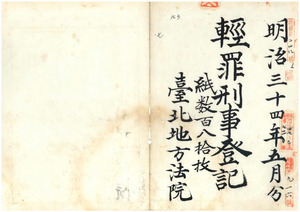 明治三十四年五月分
輕罪刑事登記
紙数百八拾枚
臺北地方法院